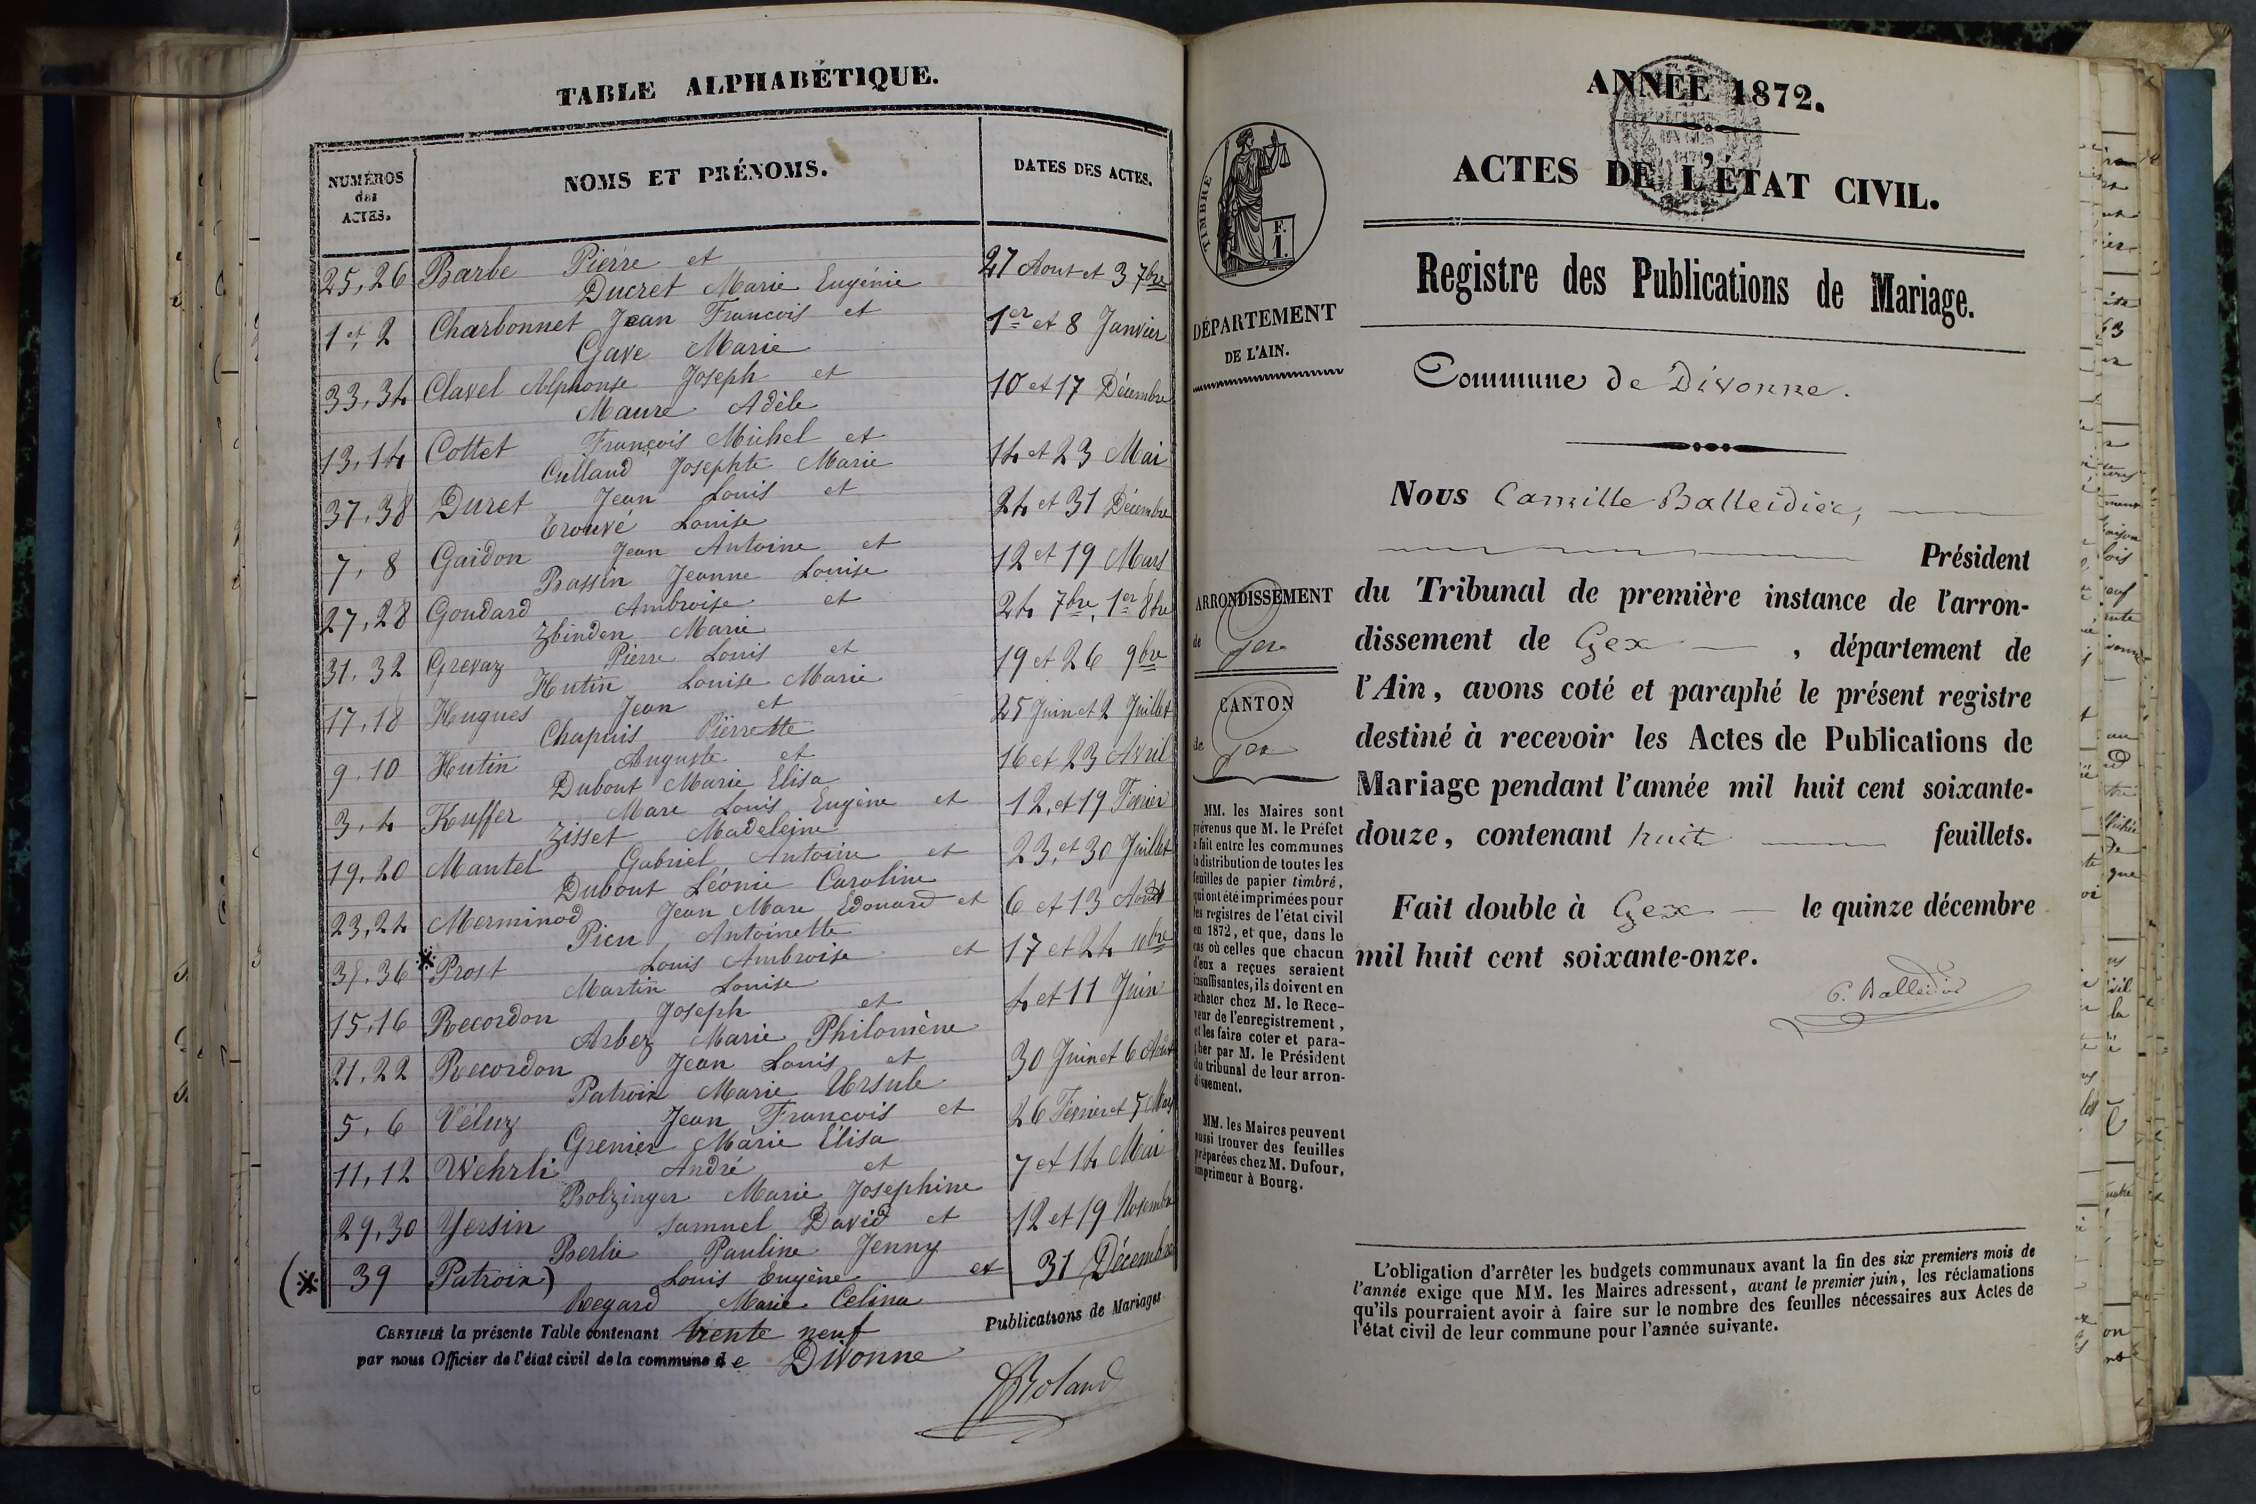 TABLE ALPHABÉTIQUE.
NUMÉROS
des
ACTES.
NOMS ET PRÉNOMS.
DATES DES ACTES.
25, 26 Barbe Pierre et 27 Aout et 3 7bre
Ducret Marie Eugénie
1 et 2 Charbonnet Jean Francois et 1er et 8 Janvier
Gave Marie
33, 34 Clavel Alphonse Joseph et 10 et 17 Décembre
Maure Adèle
13, 14 Cottet François Michel et 14 et 23 Mai
Culland Josephte Marie
37, 38 Duret Jean Louis et 24 et 31 Décembre
Trouvé Louise
7, 8 Gaidon Jean Antoine et 12 et 19 Mars
Bassin Jeanne Louise
27, 28 Goudard Ambroise et 24 7bre, 1er 8bre
Zbinden Marie
31, 32 Grevaz Pierre Louis et 19 et 26 9bre
Hutin Louise Marie
17, 18 Hugues Jean et 25 Juin et 2 Juillet
Chapuis Pierrette
9, 10 Hutin Auguste et 16 et 23 Avril
Dubout Marie Elisa
3, 4 Kuffer Marc Louis Eugène et 12, et 19 Fevrier
Zisset Madeleine
19, 20 Mantel Gabriel Antoine et 23, et 30 Juillet
Dubout Léonie Caroline
23, 24 Merminod Jean Marc Edouard et 6 et 13 Août
Picu Antoinette
35, 36 * Prost Louis Ambroise et 17 et 24 10bre
Martin Louise
15, 16 Recordon Joseph et 4 et 11 Juin
Arbez Marie Philomène
21, 22 Recordon Jean Louis et 30 Juin et 6 Août
Patroix Marie Ursule
5, 6 Véluz Jean François et 26 Fevrier et 5 Mars
Grenier Marie Élisa
11, 12 Wehrli André et 7 et 14 Mai
Bolzinger Marie Josephine
29, 30 Yersin Samuel David et 12 et 19 Novembre
Berlie Pauline Jenny
(* 39 Patroix) Louis Eugène et 31 Décembre
Regard Marie Celina
CERTIFIÉ la présente Table contenant trente neuf Publications de Mariages
par nous Officier de l'état civil de la commune de Divonne
Roland
ANNÉE 1872.
ACTES DE L'ÉTAT CIVIL.
TIMBRE
F.
1.
DÉPARTEMENT
DE L'AIN.
Registre des Publications de Mariage.
Commune de Divonne.
Nous Camille Balleidier,
Président
du Tribunal de première instance de l'arron-
dissement de Gex, département de
l'Ain, avons coté et paraphé le présent registre
destiné à recevoir les Actes de Publications de
Mariage pendant l'année mil huit cent soixante-
douze, contenant huit feuillets.
Fait double à Gex le quinze décembre
mil huit cent soixante-onze.
C. Balleidier
ARRONDISSEMENT
de Gex
CANTON
de Gex
MM. les Maires sont
prévenus que M. le Préfet
a fait entre les communes
la distribution de toutes les
feuilles de papier timbré,
qui ont été imprimées pour
les registres de l'état civil
en 1872, et que, dans le
cas où celles que chacun
d'eux a reçues seraient
insuffisantes, ils doivent en
acheter chez M. le Rece-
veur de l'enregistrement,
et les faire coter et para-
pher par M. le Président
du tribunal de leur arron-
dissement.
MM. les Maires peuvent
aussi trouver des feuilles
préparées chez M. Dufour,
imprimeur à Bourg.
L'obligation d'arrêter les budgets communaux avant la fin des six premiers mois de
l'année exige que MM. les Maires adressent, avant le premier juin, les réclamations
qu'ils pourraient avoir à faire sur le nombre des feuilles nécessaires aux Actes de
l'état civil de leur commune pour l'année suivante.